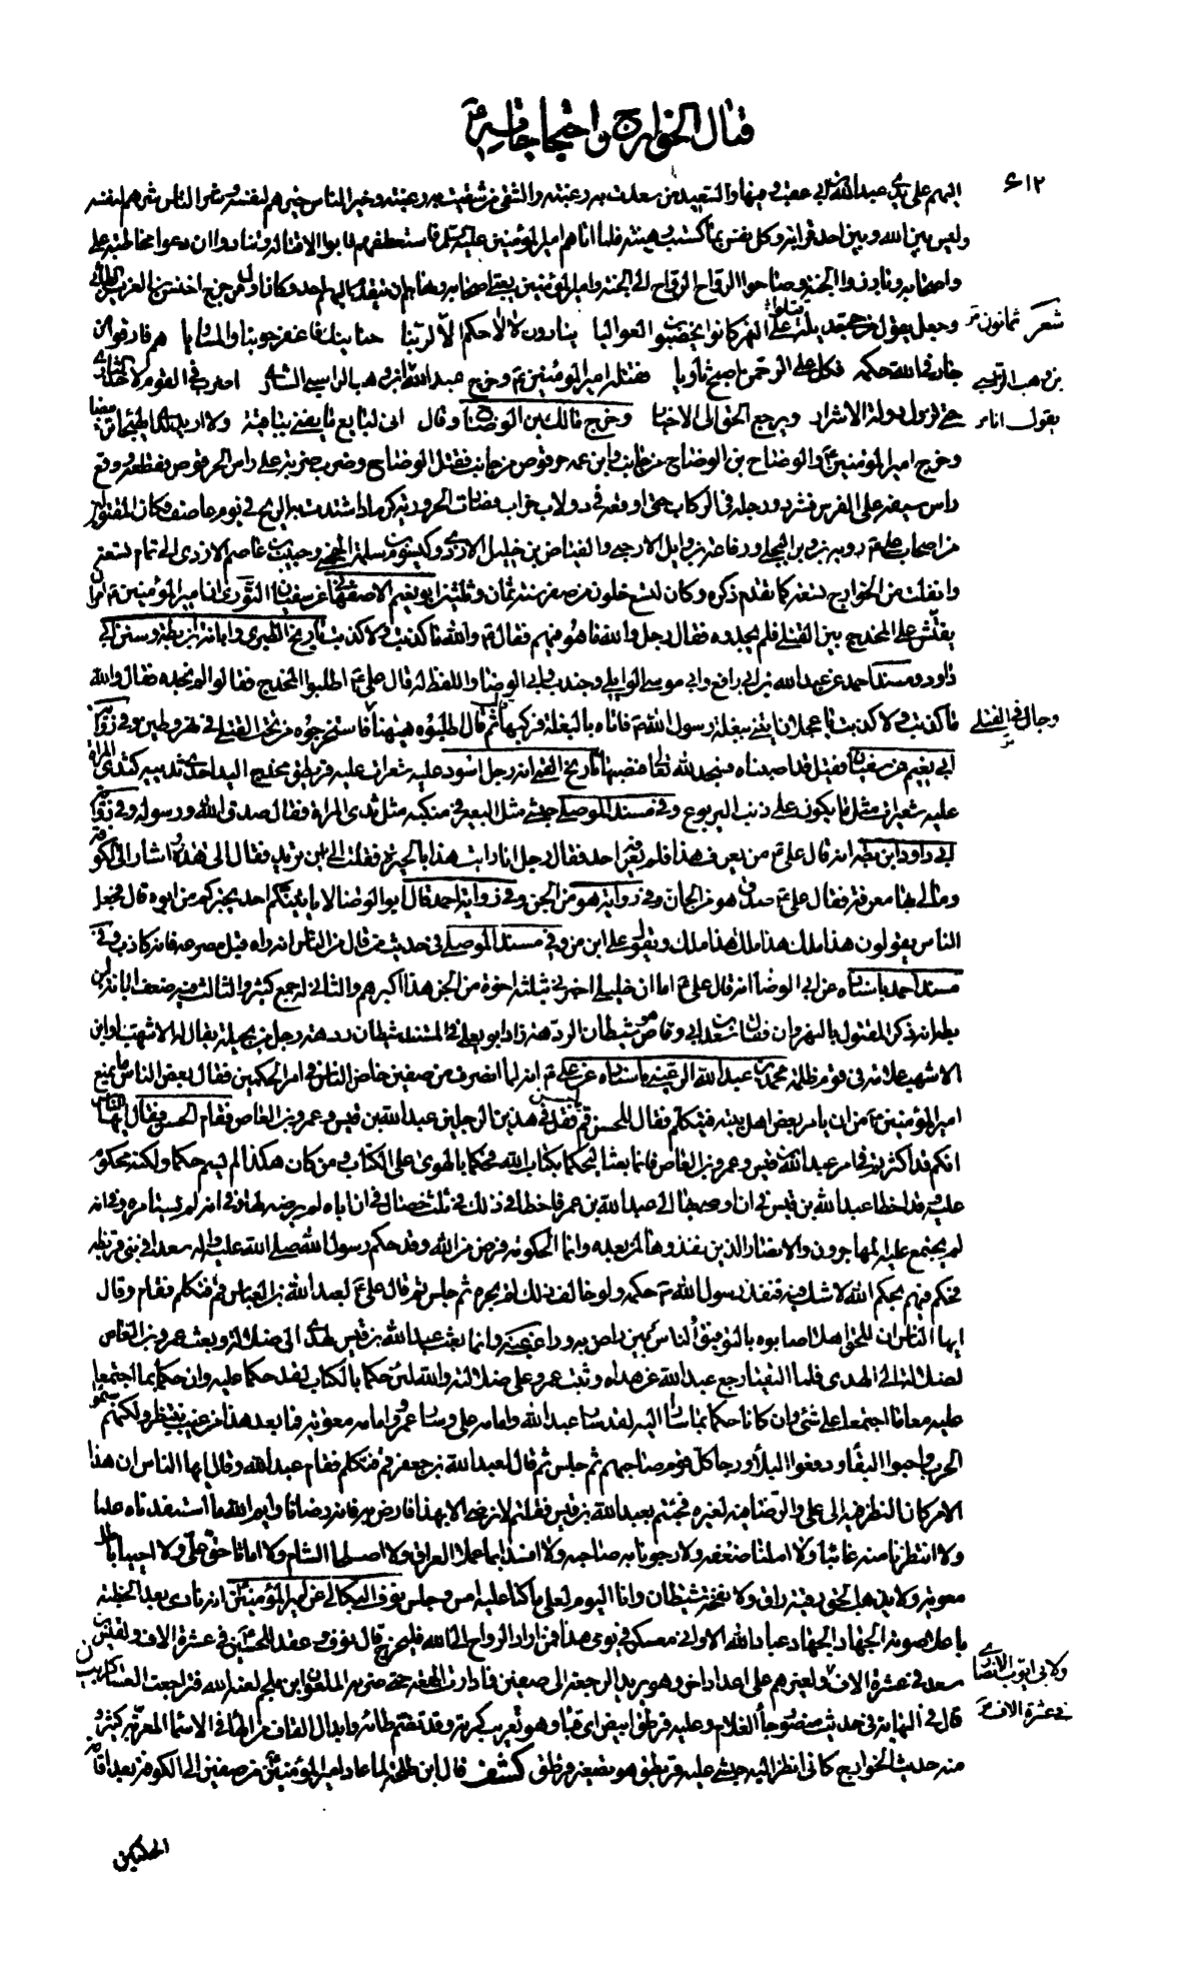 قتال الخوارج واحتجاجاته ع
٦١٢
اليهم على يدي عبد الله بن ابي عقب فيها والسعيد من سعدت به رعيته والشقي من شقيت به رعيته وخير الناس خيرهم لنفسه وشر الناس شرهم لنفسه
وليس بين الله وبين احد قرابة وكل نفس بما كسبت رهينة فلما اتاهم امير المؤمنين عليه السلم فاستعطفهم فابوا الا قتاله وتنادوا ان دعوا مخاطبة علي
واصحابه وبادروا الجنة وصاحوا الرواح الرواح الى الجنة وامير المؤمنين يعبئ اصحابه ونهاهم ان يتقدم اليهم احد وكان اول من خرج اخنس بن العزيز الطائي
وجعل يقول ينادون لا لا حكم الا لربنا حنانيك فاغفر حوبنا والمساويا هم فارقوا من
شعر ثمانون
جار في الله حكمه فكل على الرحمن اصبح ثاويا فقتله امير المؤمنين ع وخرج عبد الله بن وهب الراسبي اضرب في القوم لاخذ الثار
بن وهب الراسبي
حتى تزول دولة الاشرار ويرجع الحق الى الاخيار وخرج مالك بن الوضاح وقال اني لبايع ما يفنى بباقية ولا اريد لدى الهيجاء تربيصا
يقول انا
وخرج امير المؤمنين ع والوضاح بن الوضاح من جانب وابن عمه حرقوص من جانب فقتل الوضاح وضرب ضربة على راس الحرقوص فقطعه ووقع
راس سيفه على الفرس فشرد ورجله في الركاب حتى اوقعه في دولاب خراب فصارت الحرورية كرماد اشتدت به الريح في يوم عاصف فكان المقتولون
من اصحاب علي ع روبة بن وبر البجلي ورفاعة بن وايل الارحبي والفياض بن خليل الازدي وكيسوم بن سلمة الجهني وحبيب بن عاصم الازدي الى تمام تسعة
وانفلت من الخوارج تسعة كما تقدم ذكره وكان لتسع خلون من صفر سنة ثمان وثلثين ابو نعيم الاصفهاني عن سفيان الثوري ان امير المؤمنين ع امر ان
يفتش على المخدج بين القتلى فلم يجدوه فقال رجل والله ما هو فيهم فقال ع والله ما كذبت ولا كذبت تاريخ الطبري وابانة ابن بطة وسنن ابي
داود ومسند احمد عن عبد الله بن ابي رافع وابي موسى الوايلي وجندب وابي الوضاء واللفظ له قال علي ع اطلبوا المخدج فقالوا لم نجده فقال والله
ما كذبت ولا كذبت يا عجلان ايتني ببغلة رسول الله ص فاتاه بالبغلة فركبها ثم قال اطلبوه ههنا فاستخرجوه من تحت القتلى في نهر وطين وفي رواية
وجال في القتلى
ابي نعيم عن سفيان فقيل قد اصبناه فسجد لله تعالى فنصبها تاريخ القمي انه رجل اسود عليه شعرات عليه قريطق مخدج اليد احدى ثدييه كثدي المراة
عليه شعيرات مثل ما يكون على ذنب اليربوع وفي مسند الموصلي حبشي مثل البعير في منكبه مثل ثدي المراة فقال صدق الله ورسوله وفي رواية
ابي داود ابن بطة انه قال علي ع من يعرف هذا فلم يعرفه احد فقال رجل انا رايت هذا بالحيرة فقلت الى اين تريد فقال الى هذه واشار الى الكوفة
وما لي بها معرفة فقال علي ع صدق هو من الجان وفي رواية هو من الجن وفي رواية احمد قال ابو الوضاء لا ياتينكم احد يخبركم من ابوه قال فجعل
الناس يقولون هذا ملك هذا ملك هذا ملك ويقول علي ابن من وفي مسند الموصلي في حديث من قال من الناس انه راه قبل مصرعه فانه كاذب وفي
مسند احمد باسناده عن ابي الوضاء انه قال علي ع اما ان خليلي اخبرني بثلثة اخوة من الجن هذا اكبرهم والثاني له جمع كثير والثالث فيه ضعف ابانة ابن
بطة انه ذكر المقتول بالنهروان فقال سعد بن ابي وقاص هو شيطان الردهة زاد ابو يعلى في المسند شيطان ردهة رجل من بجيلة يقال له الاشهب او ابن
الاشهب علامة في قوم ظلمة محمد بن عبد الله الرعيني باسناده عن علي ع انه لما انصرف من صفين خاض الناس في امر الحكمين فقال بعض الناس ما يمنع
امير المؤمنين ع من ان يامر بعض اهل بيته فيتكلم فقال للحسن قم فقل في هذين الرجلين عبد الله بن قيس وعمرو بن العاص فقام الحسن فقال ايها الناس
انكم قد اكثرتم في امر عبد الله بن قيس وعمرو بن العاص فانما بعثا ليحكما بكتاب الله فحكما بالهوى على الكتاب ومن كان هكذا لم يسم حكما ولكنه محكوم
عليه وقد اخطا عبد الله بن قيس في ان اوصى بها الى عبد الله بن عمر فاخطا في ذلك في ثلث خصال في ان اباه لم يرضه لها وفي انه لم يستامره وفي انه
لم يجتمع عليه المهاجرون والانصار الذين نفذوها لمن بعده وانما الحكومة فرض من الله وقد حكم رسول الله صلى الله عليه واله سعدا في بني قريظة
فحكم فيهم بحكم الله لا شك فيه فنفذ رسول الله ص حكمه ولو خالف ذلك لم يجزه ثم جلس ثم قال علي ع لعبد الله بن العباس قم فتكلم فقام وقال
ايها الناس ان للحق اهلا اصابوه بالتوفيق والناس بين راض به وراغب عنه وانما بعث عبد الله بن قيس لهدى الى ضلالة وبعث عمرو بن العاص
لضلالة الى الهدى فلما التقيا رجع عبد الله عن هداه وثبت عمرو على ضلالته والله لئن حكما بالكتاب لقد حكما عليه وان حكما بما اجتمعا
عليه معا ما اجتمعا على شئ وان كانا حكما بما سارا اليه لقد سار عبد الله وامامه علي وسار عمرو وامامه معوية فما بعد هذا من عيب ينتظر ولكنهم سئموا
الحرب واحبوا البقاء ودفعوا البلاء ورجا كل قوم صاحبهم ثم جلس ثم قال لعبد الله بن جعفر قم فتكلم فقام عبد الله وقال ايها الناس ان هذا
الامر كان النظر فيه الى علي والرضا فيه لغيره فجئتم بعبد الله بن قيس فقلتم لا نرضى الا بهذا فارض به فانه رضانا وايم الله ما استفدناه علما
ولا انتظرنا منه غائبا ولا املنا ضعفه ولا رجونا به صاحبه ولا افسدا بما عملا العراق ولا اصلحا الشام ولا اماتا حق علي ولا احييا باطل
معوية ولا يذهب الحق رقية راق ولا نفخة شيطان وانا اليوم لعلى ما كنا عليه امس وجلس نوف البكالي عن امير المؤمنين ع انه نادى بعد الخطبة
باعلى صوته الجهاد الجهاد عباد الله الا واني معسكر في يومي هذا فمن اراد الرواح الى الله فليخرج قال نوف وعقد للحسين في عشرة الاف ولقيس بن
سعد في عشرة الاف ولغيرهم على اعداد اخر وهو يريد الرجعة الى صفين فما دارت الجمعة حتى ضربه الملعون ابن ملجم لعنه الله فتراجعت العساكر
ولابي ايوب الانصاري
في عشرة الاف
قال في النهاية في حديث منصور جاء الغلام وعليه قرطق ابيض اي قباء وهو تعريب كرته وقد تضم طاؤه وابدال القاف من الهاء في الاسماء المعربة كثير و
منه حديث الخوارج كاني انظر اليه حبشي عليه قريطق هو تصغير قرطق كشف قال ابن طلحة لما عاد امير المؤمنين ع من صفين الى الكوفة بعد اقامة
الحكمين